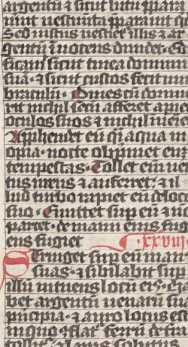 argentū & sicut lutū p̄para
uit uestimēta p̄parauit q̇
sed iustus uestiet̄ illis & ar
gentū īnocens diuidet. Edi
ficauit sicut tinea domum
suā. & sicut custos fecit um
braculū. Diues cū dormi
erit nichil secū afferet aper
oculos suos & nichil īueniet
Apprehendet eū q̄si aqua in
opia. nocte opprimet eum
tempestas. Tollet eū uen
tus urens & auferet. & uel
ud turbo rapiet eū de loco
suo. Emittet sup̄ eū & nō
parcet. de manu eius fugi
ens fugiet xxviij
Stringet sup̄ eū man̄
suas. & sibilabit sup̄
illū intuens locū ei⁹. ha
bet argentū uenarū suarū
principia. & auro locus est
in quo ꝯflat̄ ferrū de terra
tollit̄ & lapis solutus